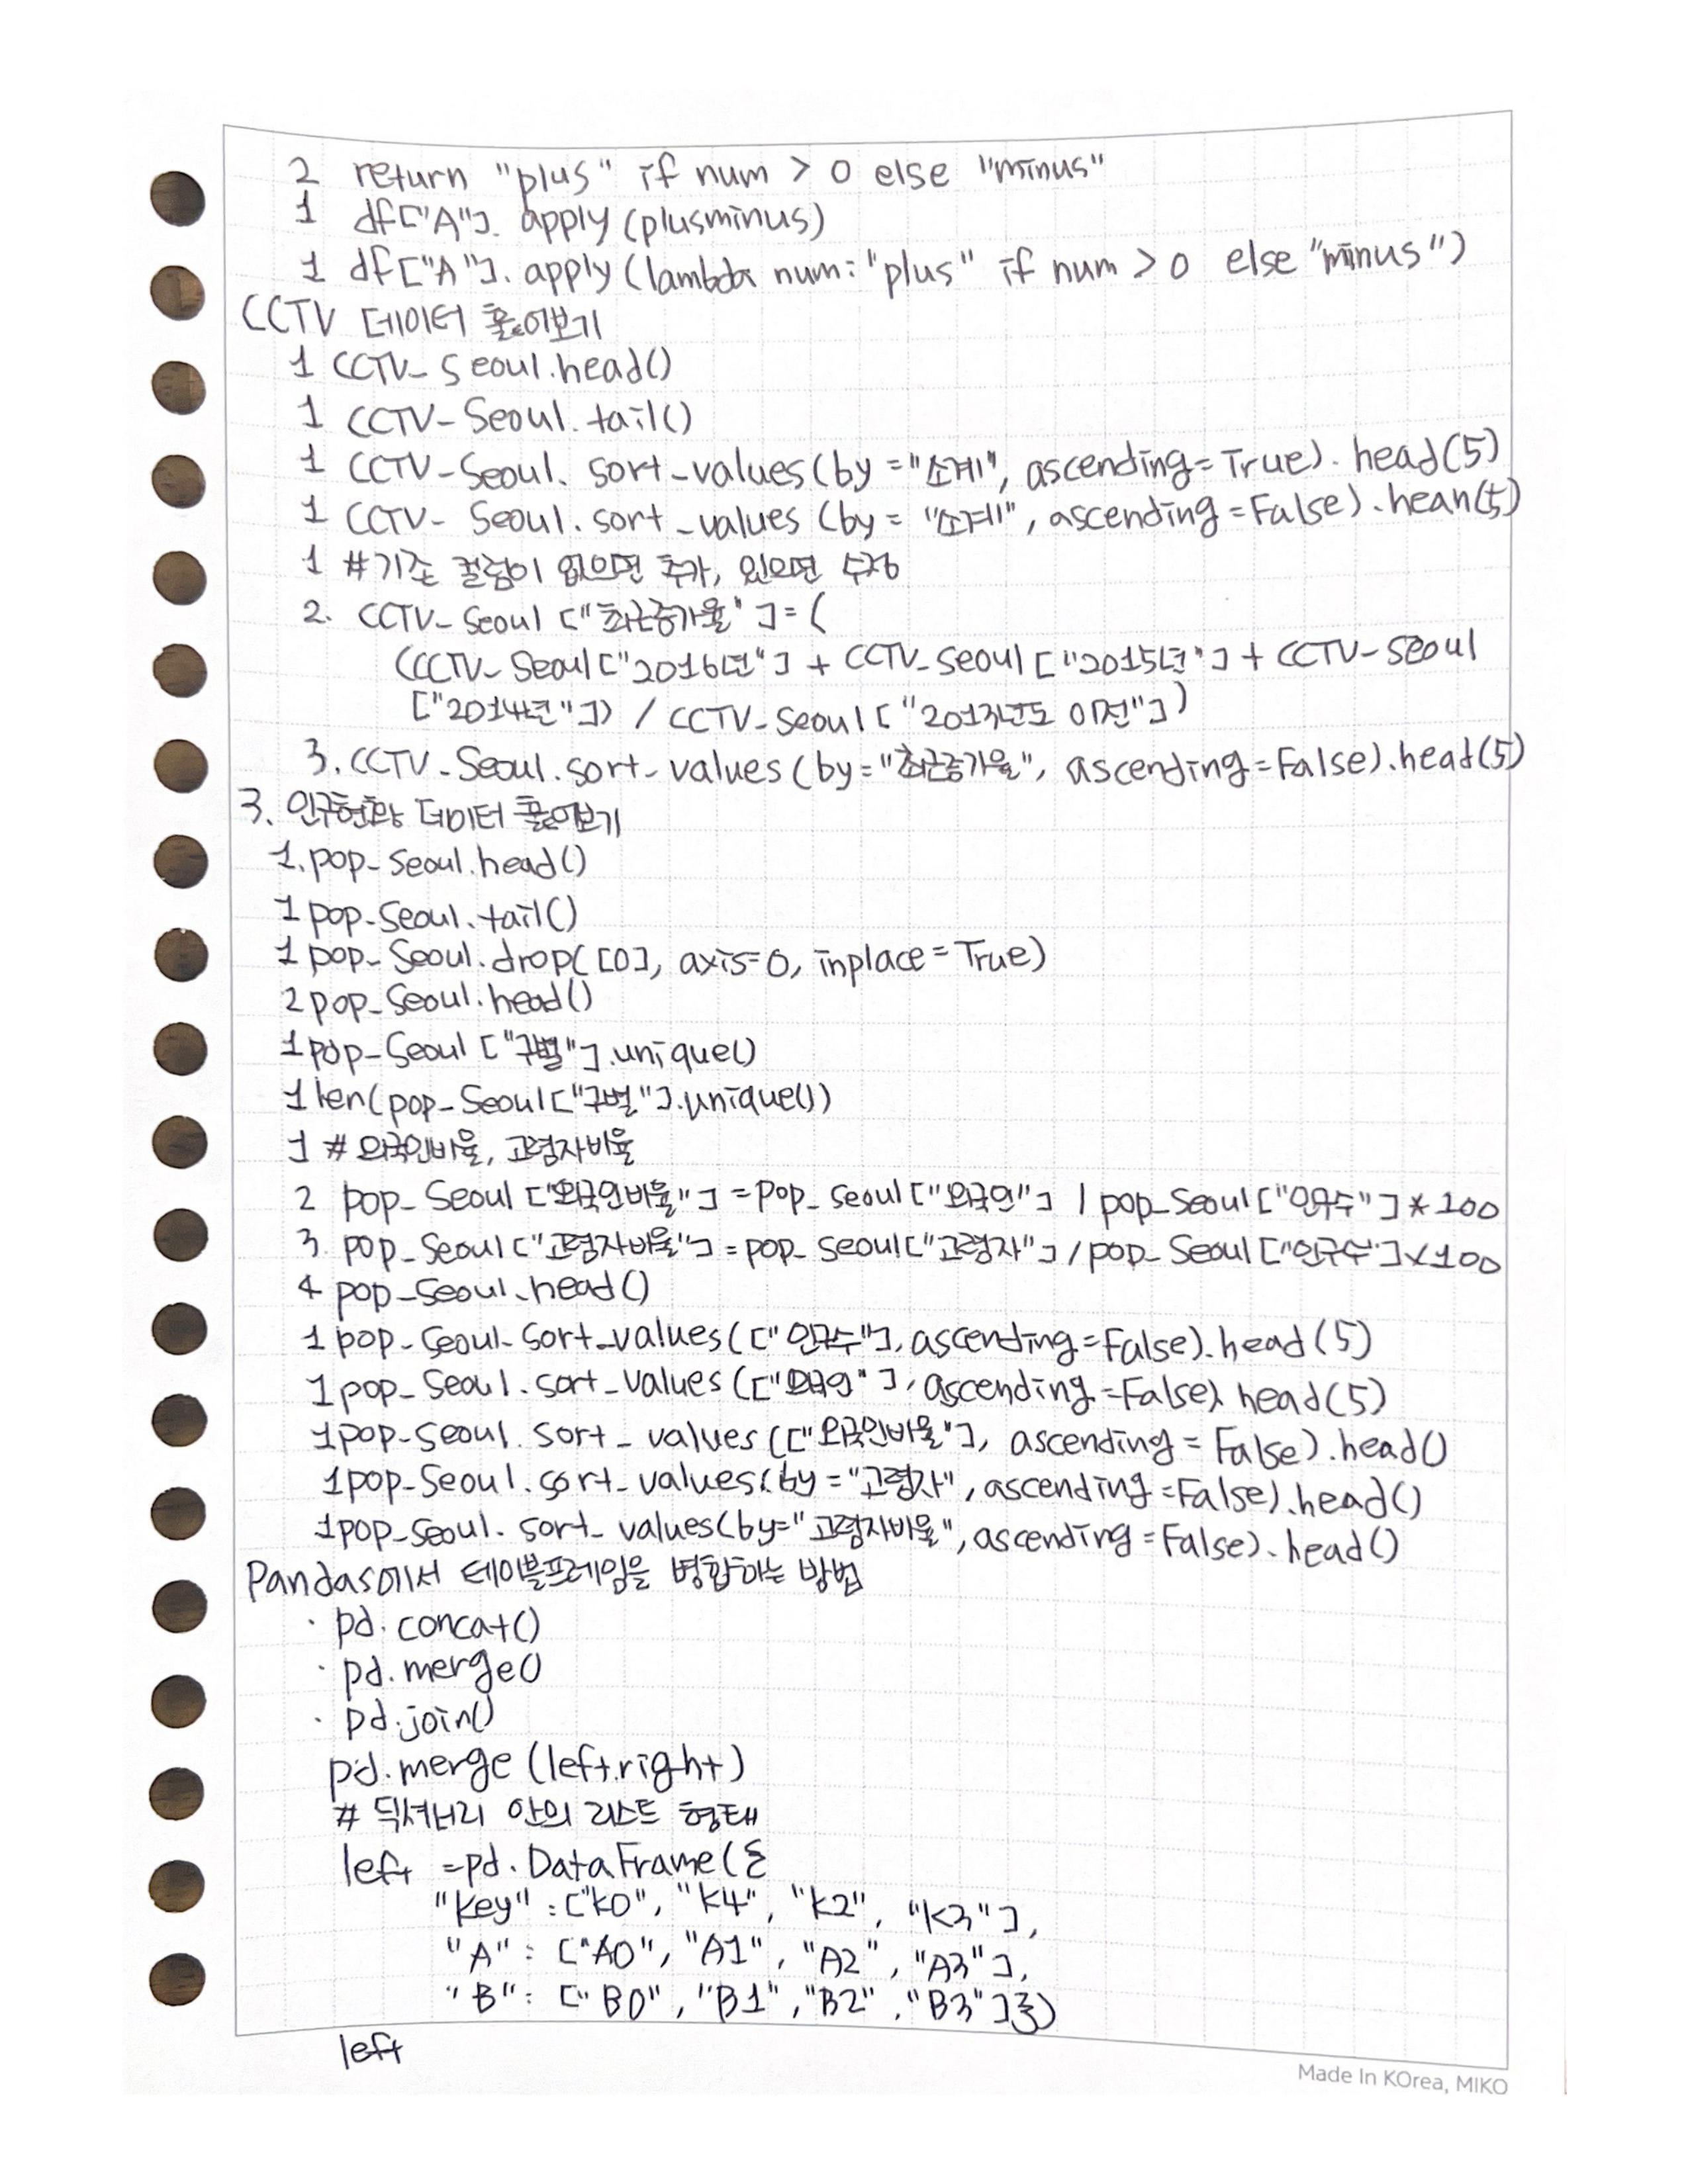 2 return "plus" if num > 0 else "minus"
1 df["A"]. apply (plusminus)
1 df["A"]. apply (lambda num: "plus" if num > 0 else "minus")
CCTV 데이터 훑어보기
1 CCTV_Seoul.head()
1 CCTV_Seoul.tail()
1 CCTV_Seoul. sort_values(by="소계", ascending=True). head(5)
1 CCTV_Seoul. sort_values (by = "소계", ascending=False).hean(5)
1 #기존 컬럼이 없으면 추가, 있으면 수정
2. CCTV_Seoul ["최근증가율"]=(
(CCTV_Seoul["2016년"] + CCTV_Seoul ["2015년"] + CCTV_Seoul
["2014년"]) / CCTV_Seoul ["2013년도 이전"])
3. CCTV_Seoul.sort_values (by="최근증가율", ascending=False).head(5)
3. 인구현황 데이터 훑어보기
1. pop_Seoul.head()
1 pop_Seoul.tail()
1 pop_Seoul.drop([0], axis=0, inplace=True)
2 pop_Seoul.head()
1 pop_Seoul ["구별"].unique()
1 len(pop_Seoul["구별"].unique())
1 # 외국인비율, 고령자비율
2 pop_Seoul ["외국인비율"] = pop_Seoul ["외국인"] / pop_Seoul ["인구수"] * 100
3. pop_Seoul["고령자비율"] = pop_Seoul["고령자"] / pop_Seoul ["인구수"] * 100
4 pop_Seoul.head()
1 pop_Seoul.sort_values(["인구수"], ascending=False).head(5)
1 pop_Seoul.sort_values(["외국인"], ascending=False).head(5)
1 pop_Seoul. sort_values (["외국인비율"], ascending = False).head()
1 pop_Seoul.sort_values(by = "고령자", ascending =False).head()
1 pop_Seoul. sort_values(by="고령자비율", ascending =False).head()
Pandas에서 데이블프레임을 병합하는 방법
· pd. concat()
· pd.merge()
· pd.join()
pd.merge (left.right)
# 딕셔너리 안의 리스트 형태
left =pd.DataFrame({
"key" : ["K0", "K4", "K2", "K3"],
"A" : ["A0", "A1", "A2", "A3"],
"B" : ["B0", "B1", "B2", "B3"]})
left
Made In KOrea, MIKO